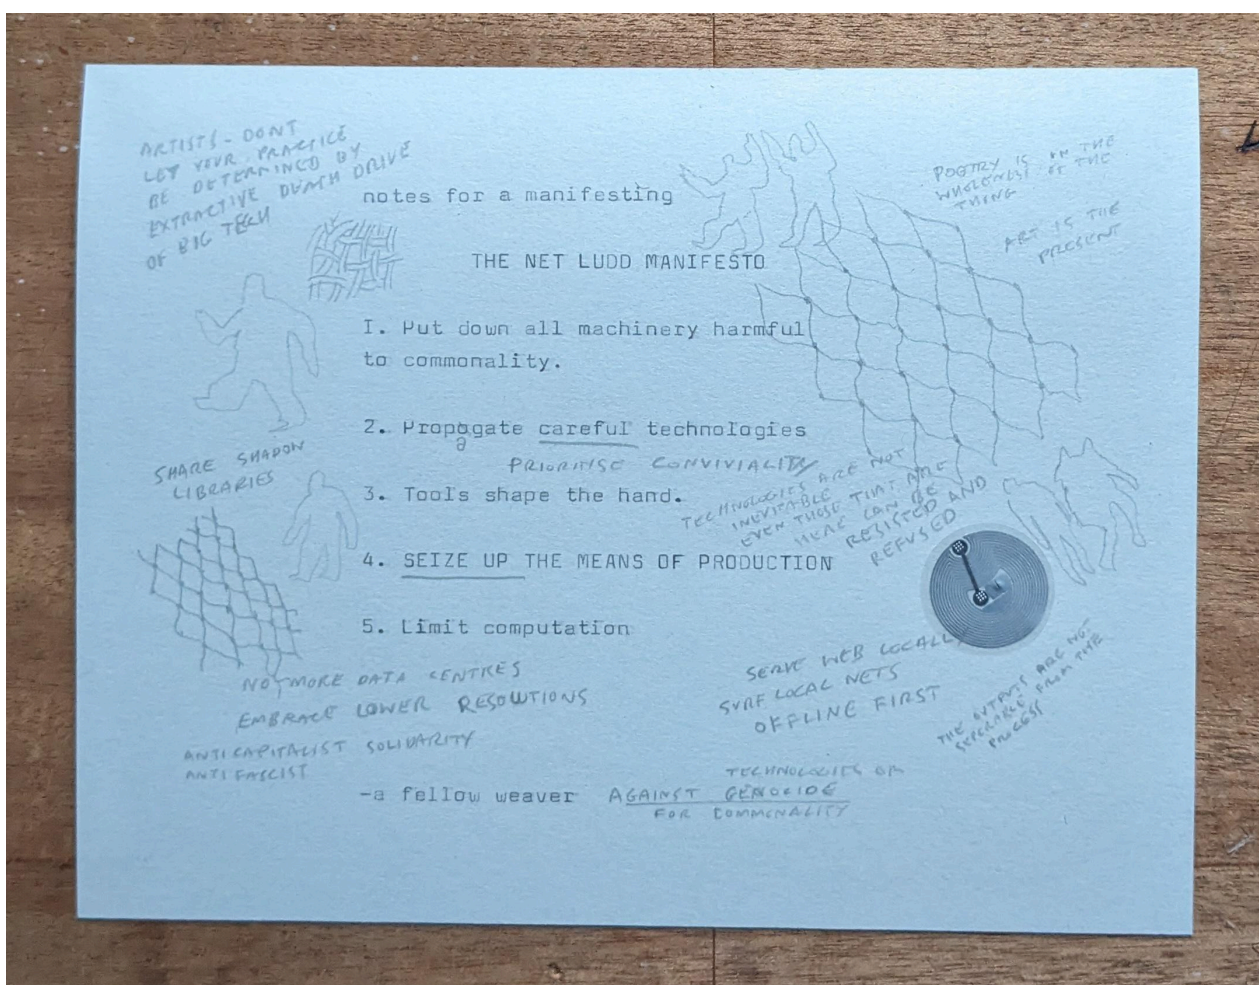 ARTISTS - DONT
LET YOUR PRACTICE
BE DETERMINED BY
EXTRACTIVE DEATH DRIVE
OF BIG TECH
notes for a manifesting
POETRY IS IN THE
WHOLENESS OF THE
THING
ART IS THE
PRESENT
THE NET LUDD MANIFESTO
I. Put down all machinery harmful
to commonality.
2. Propogate careful technologies
a
PRIORITISE CONVIVIALITY
SHARE SHADOW
LIBRARIES
3. Tools shape the hand.
TECHNOLOGIES ARE NOT
INEVITABLE
EVEN THOSE THAT ARE
HERE CAN BE
RESISTED AND
REFUSED
4. SEIZE UP THE MEANS OF PRODUCTION
5. Limit computation
NOT MORE DATA CENTRES
EMBRACE LOWER RESOLUTIONS
ANTICAPITALIST SOLIDARITY
ANTIFASCIST
SERVE WEB LOCALLY
SURF LOCAL NETS
OFFLINE FIRST
THE OUTPUTS ARE NOT
SEPERABLE FROM THE
PROCESS
-a fellow weaver
TECHNOLOGIES
AGAINST GENOCIDE
FOR COMMONALITY